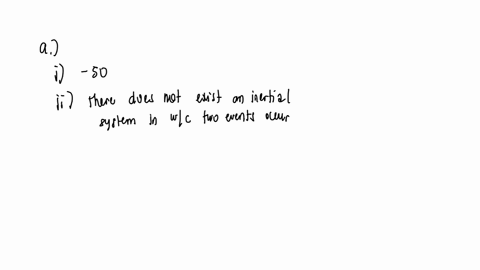 a.)
i) -50
ii) there does not exist an inertial
system in w/c two events occur